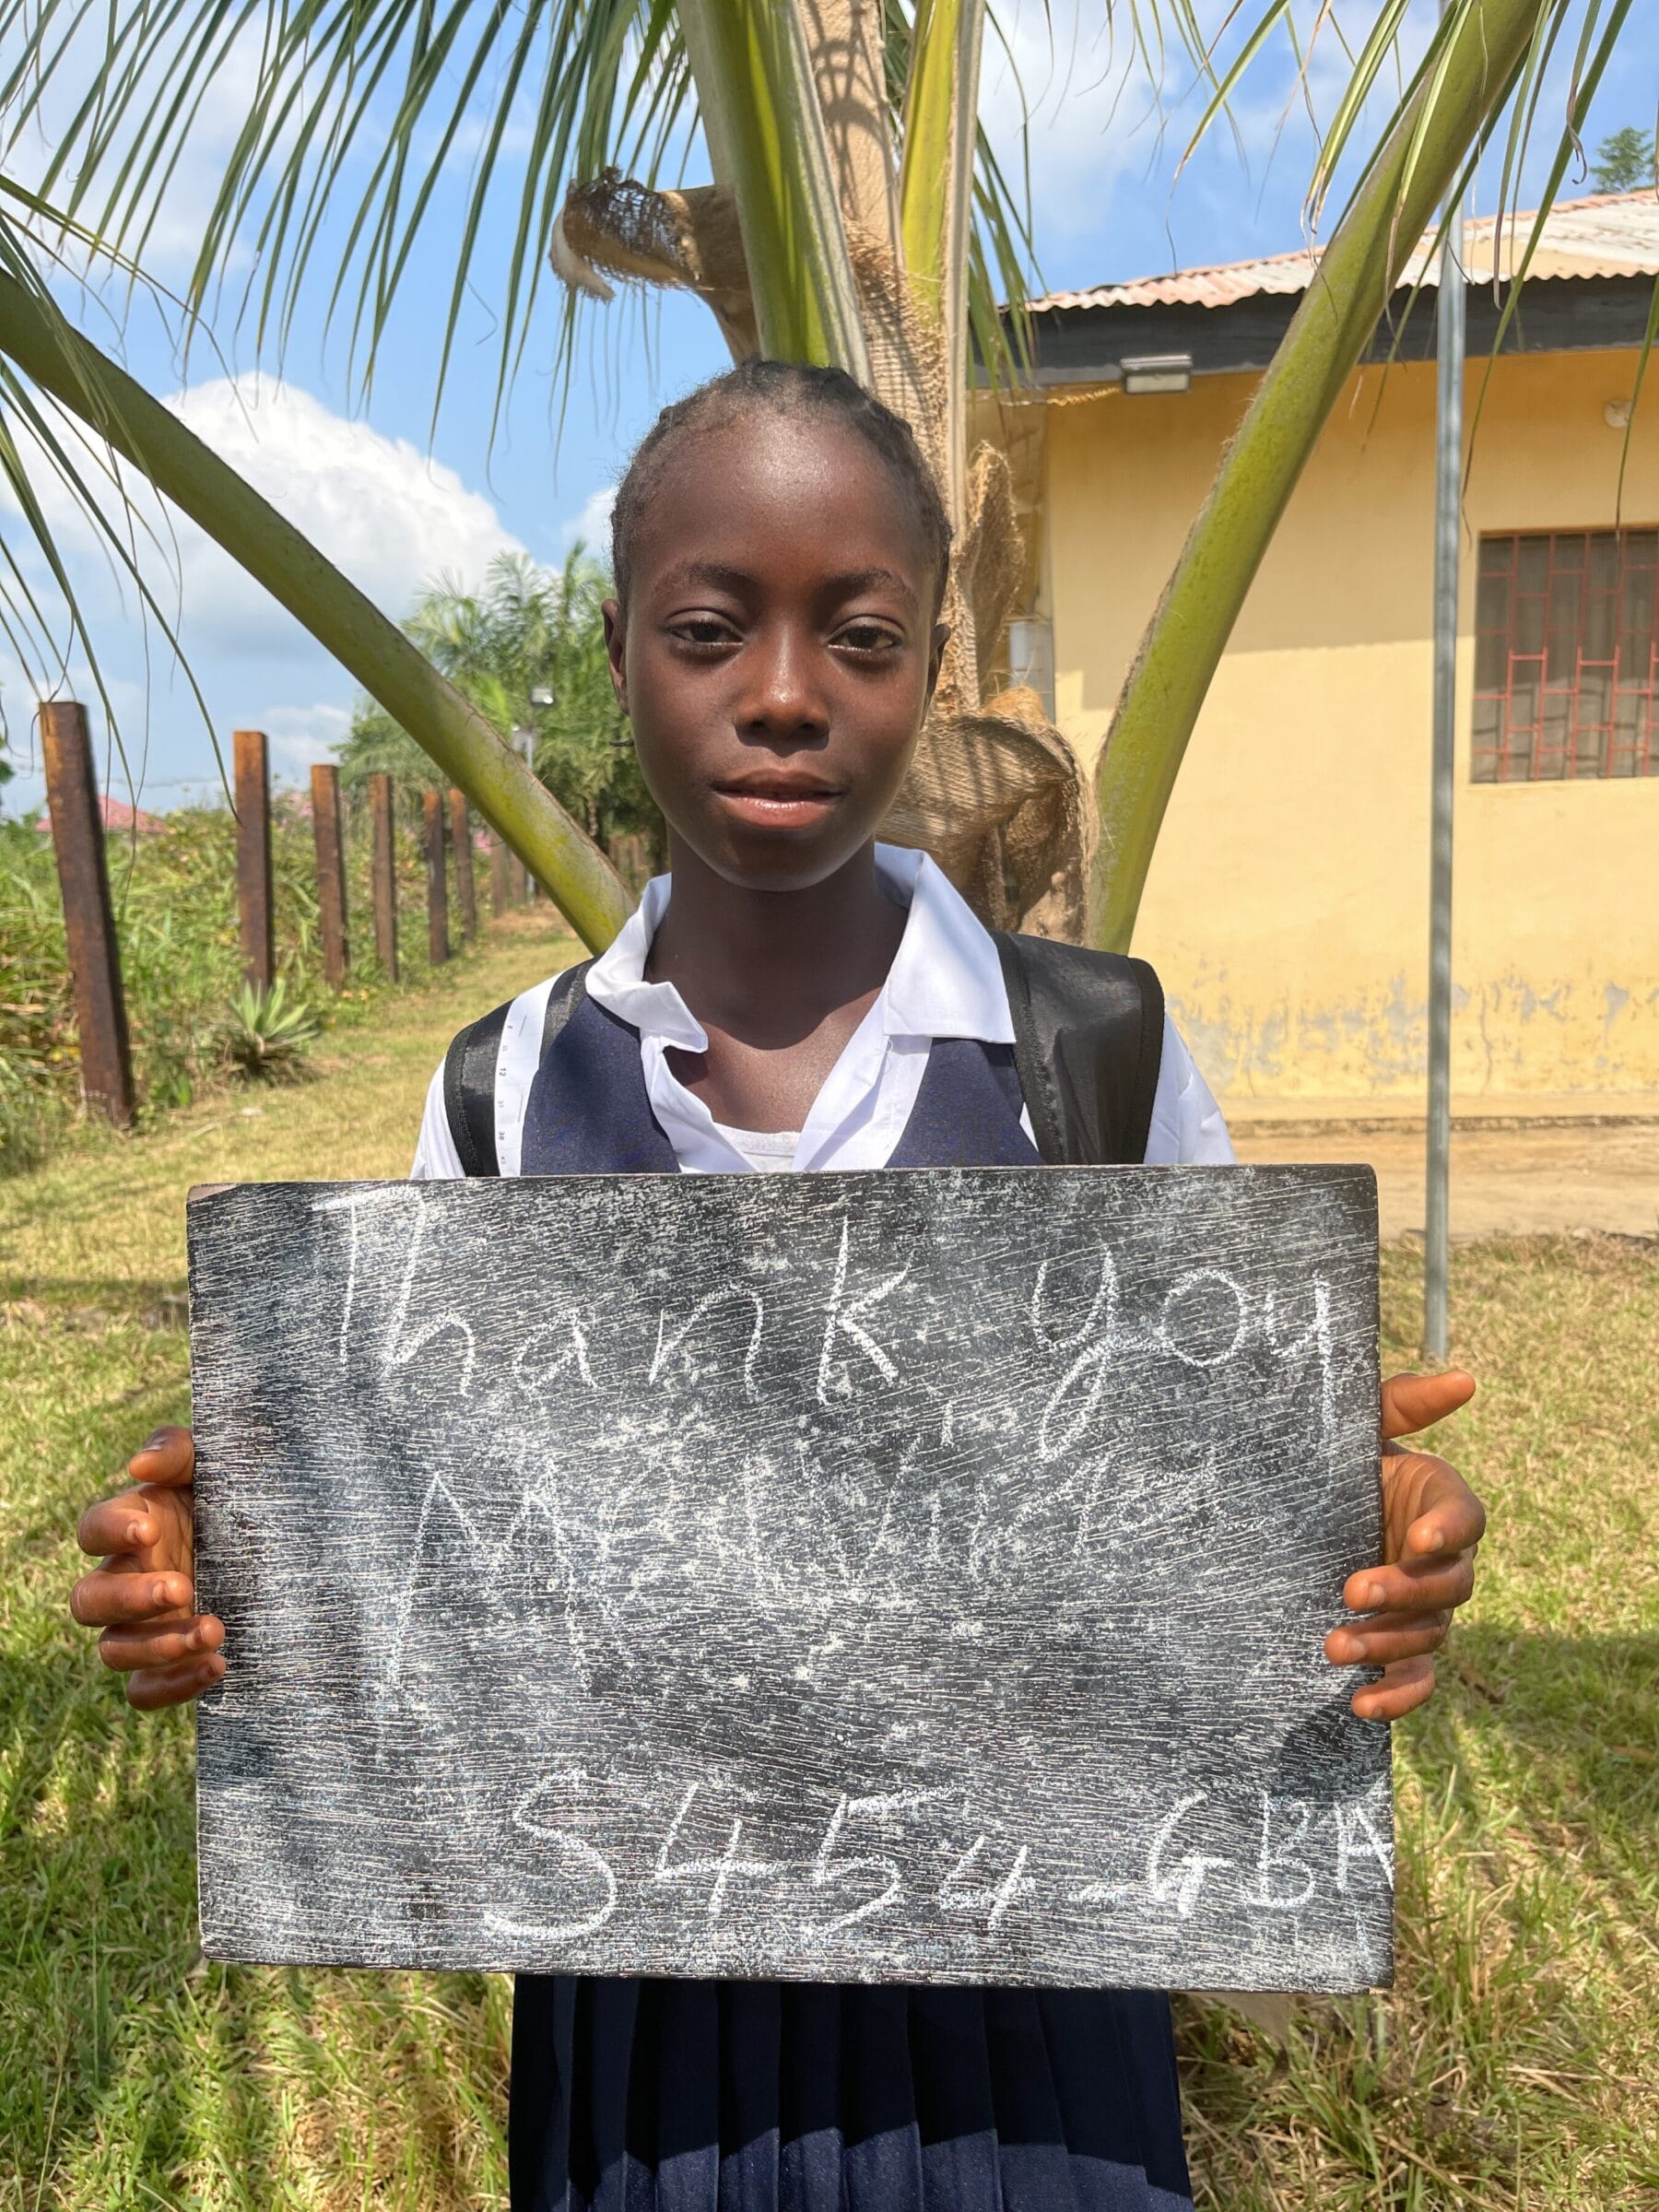 Thank you
S454-GBA